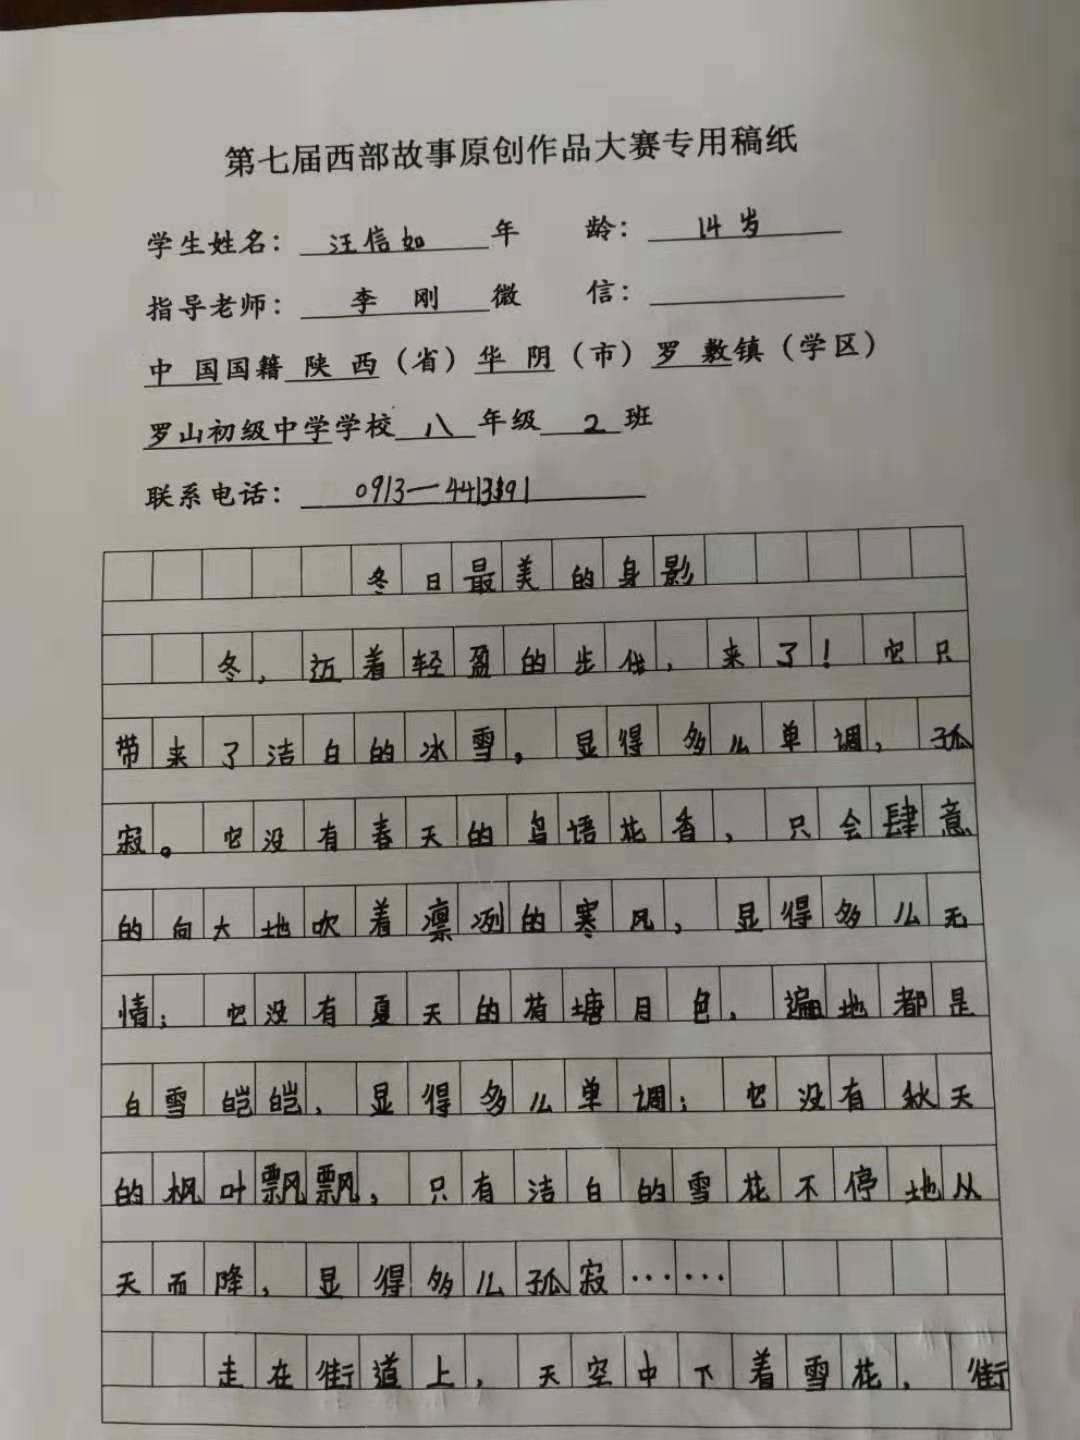 第七届西部故事原创作品大赛专用稿纸
学生姓名：汪信如年 龄：14岁
指导老师：李 刚 微 信：
中 国国籍 陕 西（省）华 阴（市）罗 敷镇（学区）
罗山初级中学学校 八 年级 2 班
联系电话：0913—4413391
冬日最美的身影
冬，迈着轻盈的步伐，来了！它只
带来了洁白的冰雪。显得多么单调，孤
寂。它没有春天的鸟语花香，只会肆意
的向大地吹着凛冽的寒风，显得多么无
情；它没有夏天的荷塘月色，遍地都是
白雪皑皑，显得多么单调；它没有秋天
的枫叶飘飘，只有洁白的雪花不停地从
天而降，显得多么孤寂……
走在街道上，天空中下着雪花，街